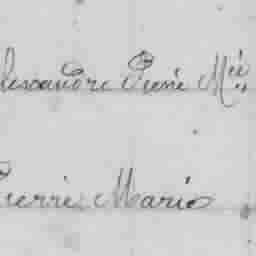 lexandre Pierre M.ie
Pierre Marie